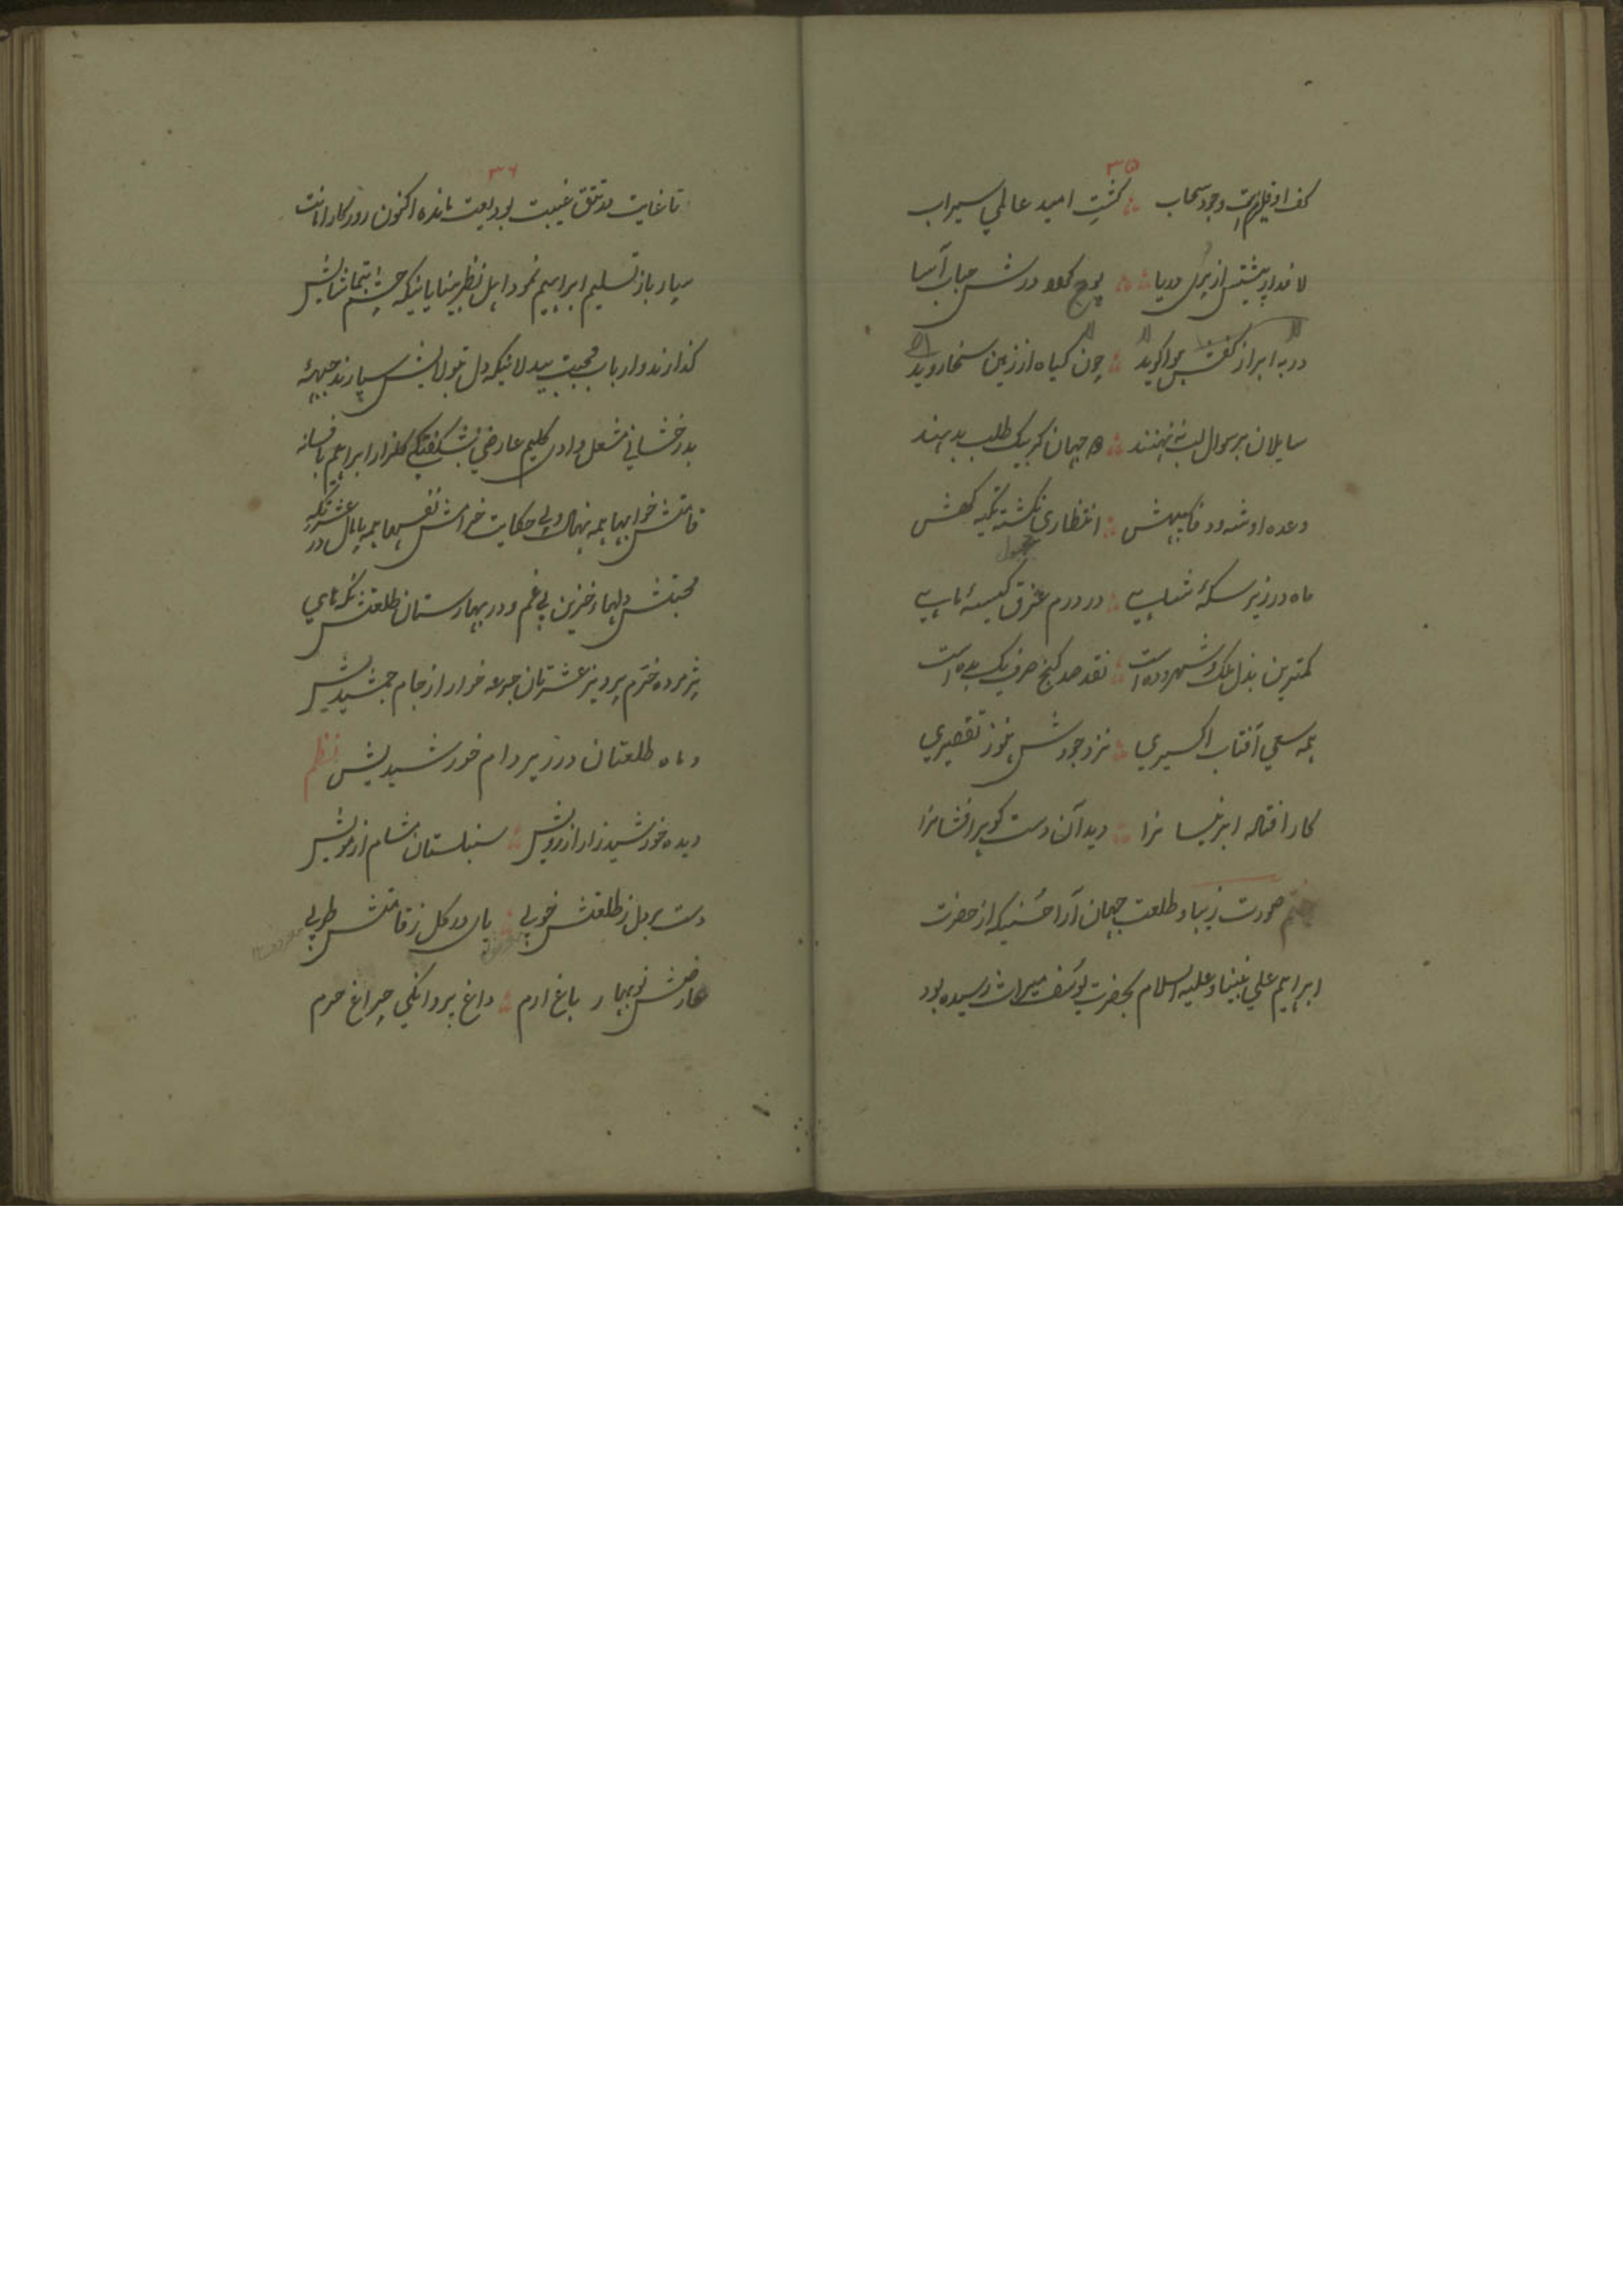 ۳۵
کف او قبله وجود سحاب کشت امید عالمی سیراب
لافد ار پیشش از بزرگی دریا پوچ درش حباب آسا
در به ابر از کفش چون گیاه از زمین سخا روید
سایلان بر سوال لب ننهند جهان گر بیک طلب بدهند
وعده او شده وفا انتظاری نکشته کفش
ماه در زیر سکه در درم غرق کیسه
کمترین بذل ملک و شهر وده است نقد صد کنج صرف یک بده است
همه سعی آفتاب اکسیری نزد جودش هنوز تقصیری
کار افتاده ابر نیسانرا دید آن دست کوهر افشانرا
صورت زیبا و طلعت جهان آرا حسنیکه از حضرت
ابراهیم علی نبینا و علیه السلام بحضرت یوسف میراث رسیده بود
۳۶
تا غایت در تتق غیبت بودیعت مانده اکنون روزکار امانت
سپار باز تسلیم ابراهیم نمود اهل نظر بینایانیکه چشم بتماشایش
کذارند و ارباب محبت بیدلانیکه دل بتولایش سپارند جبهه
بدرخشانی مشعل وادی کلیم عارضی بشکفتکی کلزار ابراهیم با فسانه
قامتش خوابها همه نهال و بی حکایت خرامش نفسها همه پایمال در عشرتکه
محبتش دلها و خزین بی غم و در بهارستان طلعتش نکه های
پژمرده خرم پرویز عشرتان جرعه خوار از جام جمشیدیش
و ماه طلعتان در زیر دام خورشیدیش نظم
دیده خورشید زار از رویش سنبلستان مشام از مویش
دست بر دل ز طلعتش خوبی پای در کل ز قامتش طوبی
عارضش نوبهار باغ ارم داغ پروانکی چراغ حرم